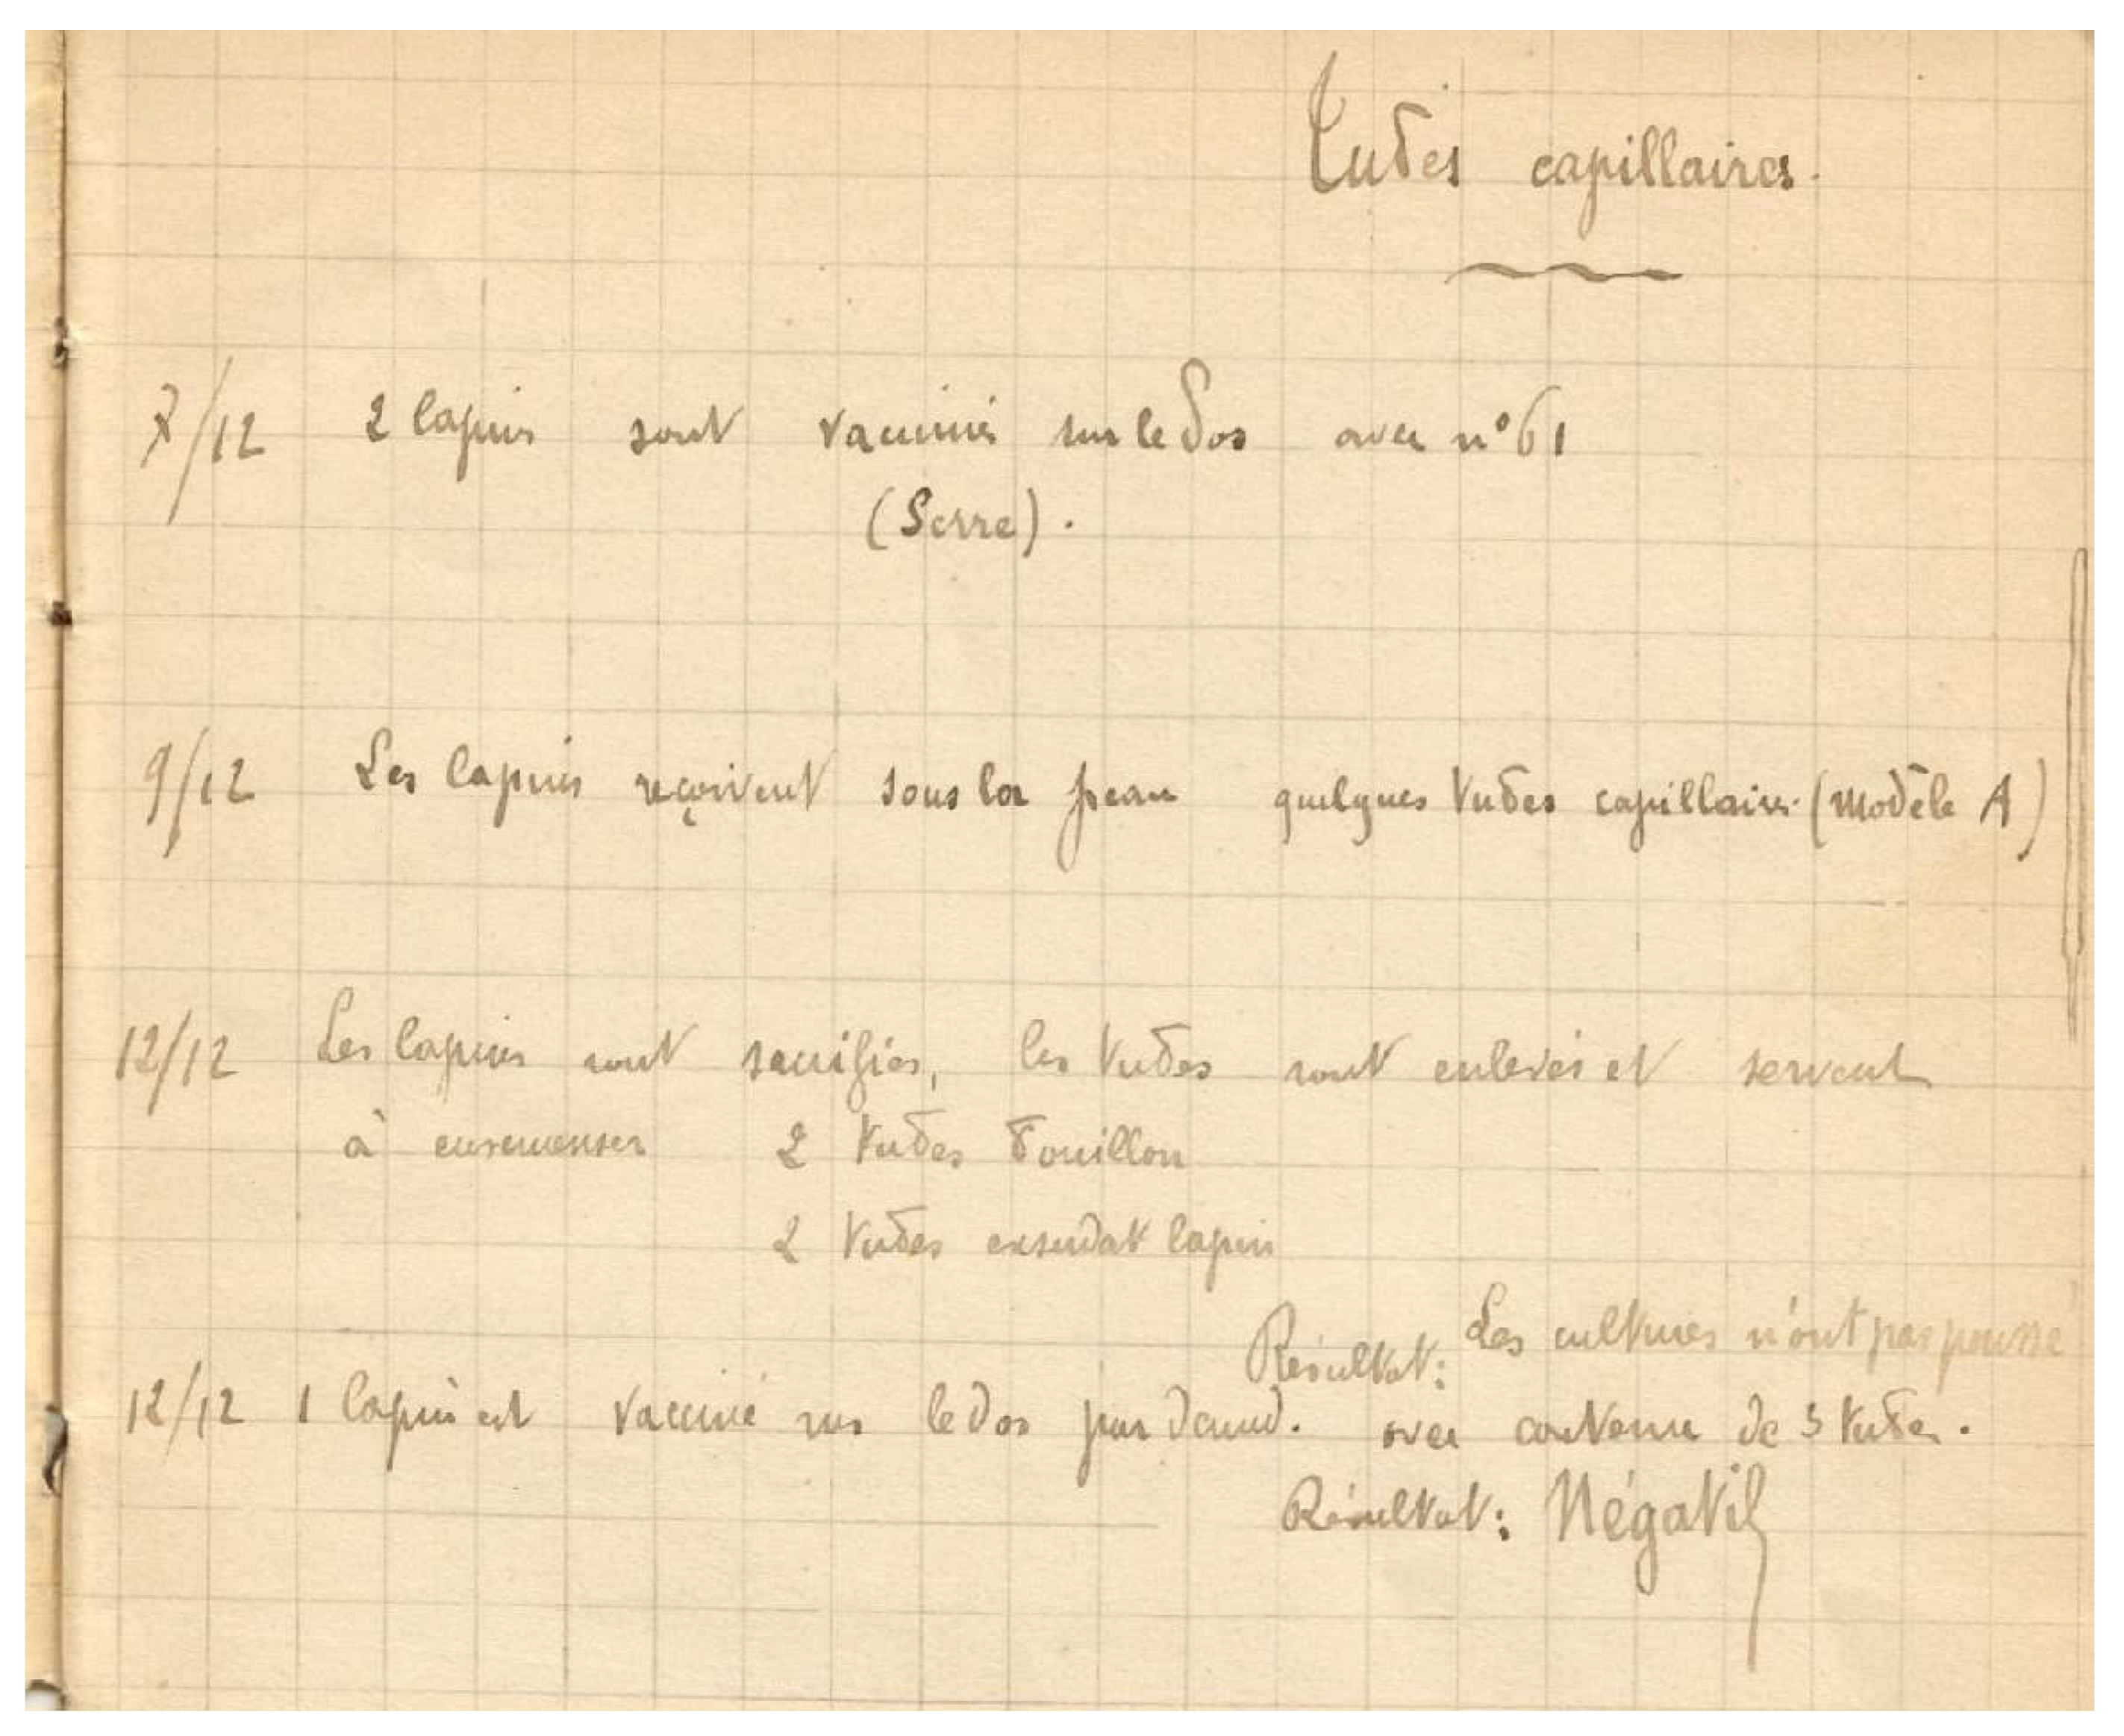 Tubes capillaires.
7/12 2 lapins sont vaccinés sur le dos avec n°61
(Serre).
9/12 Les lapins reçoivent sous la peau quelques tubes capillaires (modèle A)
12/12 Les lapins sont sacrifiés, les tubes sont enlevés et servent
à ensemenser 2 tubes bouillon
2 tubes exsudat lapin
Résultat: Les cultures n'ont pas poussé
12/12 1 lapin est vacciné sur le dos par avec contenu de 3 tubes.
Résultat: Négatif